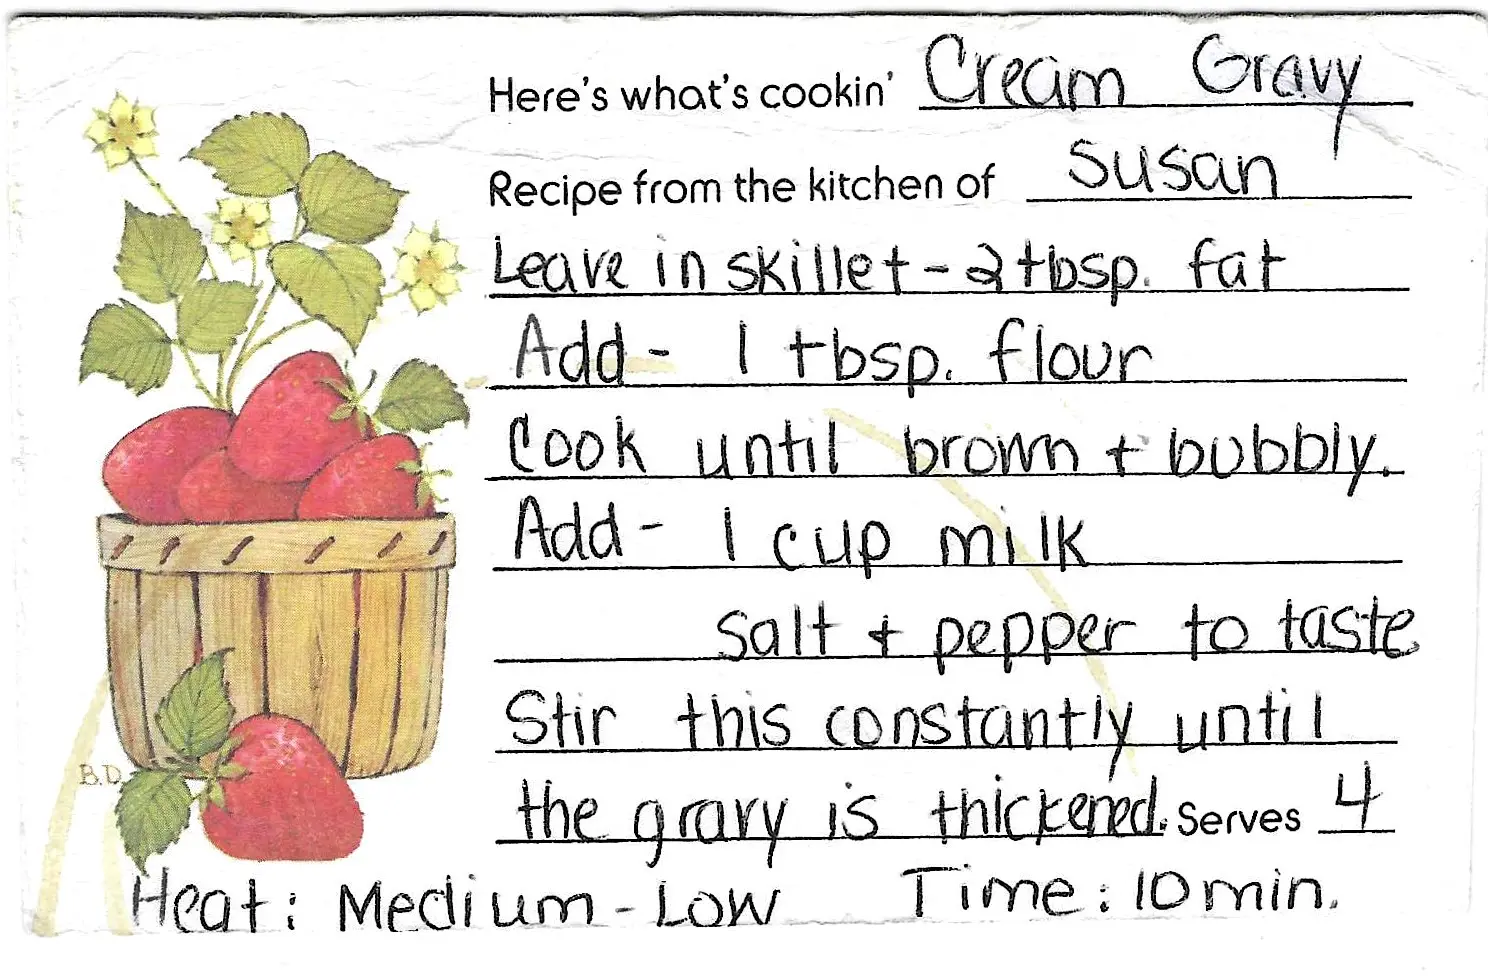 Here's what's cookin' Cream Gravy
Recipe from the kitchen of Susan
Leave in skillet - 2 tbsp. fat
Add - 1 tbsp. flour
Cook until brown + bubbly.
Add - 1 cup milk
salt + pepper to taste
Stir this constantly until
the gravy is thickened. Serves 4
B.D.
Heat: Medium - Low Time: 10 min.